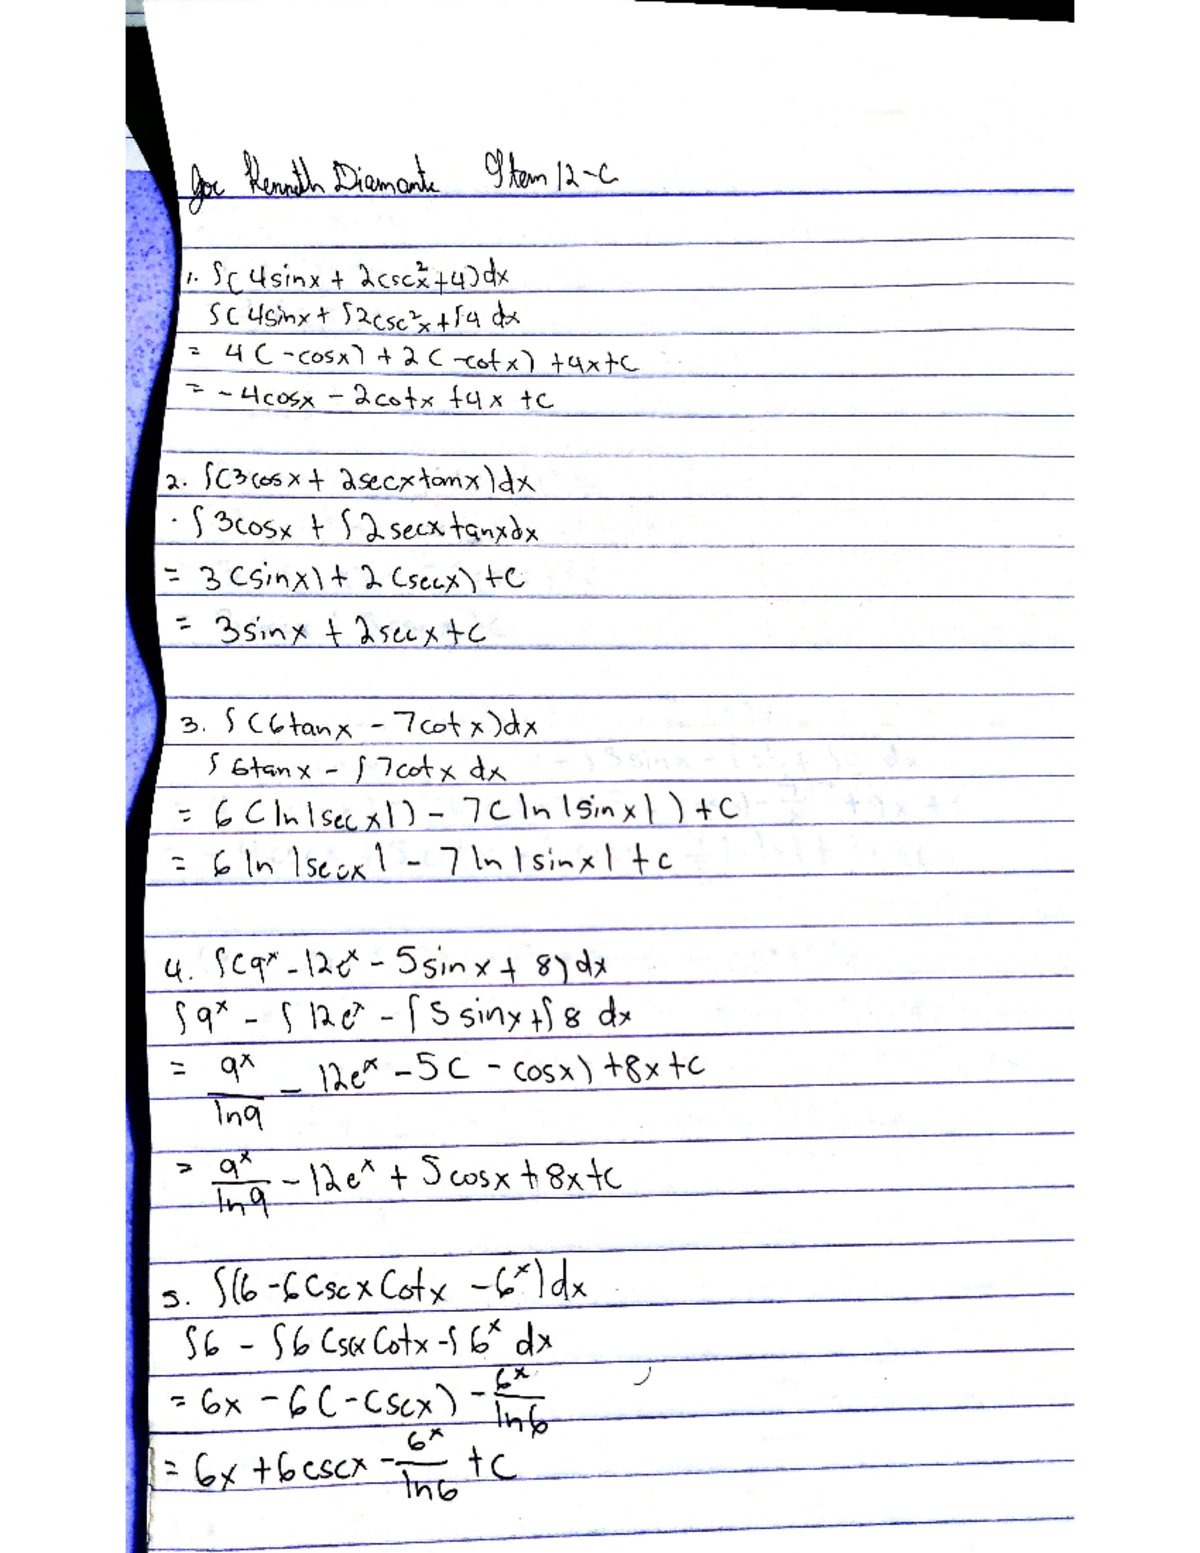 Joe Kenneth Diamante Stem 12-C
1. ∫(4sinx + 2csc²x+4)dx
∫(4sinx + ∫2csc²x+∫4 dx
= 4(-cosx) + 2(-cotx) +4x+c
= -4cosx - 2cotx +4x +c
2. ∫(3cosx + 2secxtanx)dx
· ∫3cosx + ∫2secxtanxdx
= 3(sinx)+ 2(secx)+c
= 3sinx + 2secx+c
3. ∫(6tanx - 7cotx)dx
∫6tanx - ∫7cotx dx
= 6(ln|secx|) - 7(ln|sinx|)+c
= 6ln|secx| - 7ln|sinx|+c
4. ∫(9ˣ-12eˣ-5sinx+8)dx
∫9ˣ - ∫12eˣ - ∫5sinx+∫8 dx
= 9ˣ/ln9 - 12eˣ -5(-cosx)+8x+c
= 9ˣ/ln9 - 12eˣ + 5cosx+8x+c
5. ∫(6-6CscxCotx -6ˣ)dx
∫6 - ∫6CscxCotx-∫6ˣ dx
= 6x -6(-Cscx) - 6ˣ/ln6
= 6x +6cscx - 6ˣ/ln6 +c